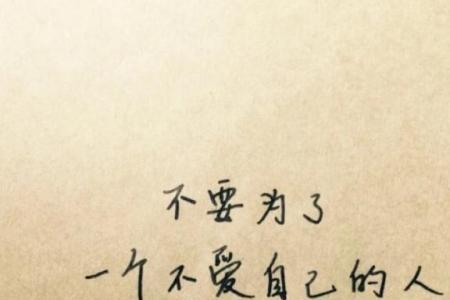 不要为了
一个不爱自己的人